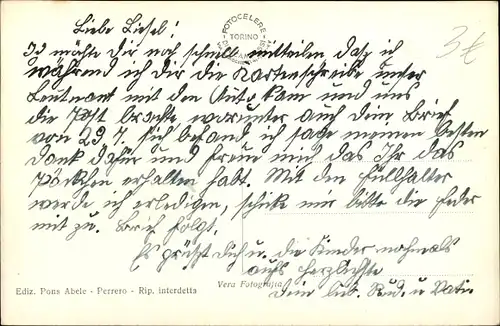 Liebe Liesel!
FOTOCELERE
TORINO
3€
Ich möchte Dir noch schnell mitteilen dass ich
während ich dir die Karten schreibe unser
Leutnant mit den Auto kam und uns
die Post brachte worunter auch dein Brief
von 29 7. sich befand ich sage meinen besten
Dank dafür und freue mich das Ihr das
Päckchen erhalten habt. Mit den Füllhalter
werde ich erledigen, schicke mir bitte die Feder
mit zu. Brief folgt.
Es grüßt Dich u. die Kinder nochmals
aufs herzlichste
Dein lieb. u. Vati
Ediz. Pons Abele - Perrero - Rip. interdetta
Vera Fotografia